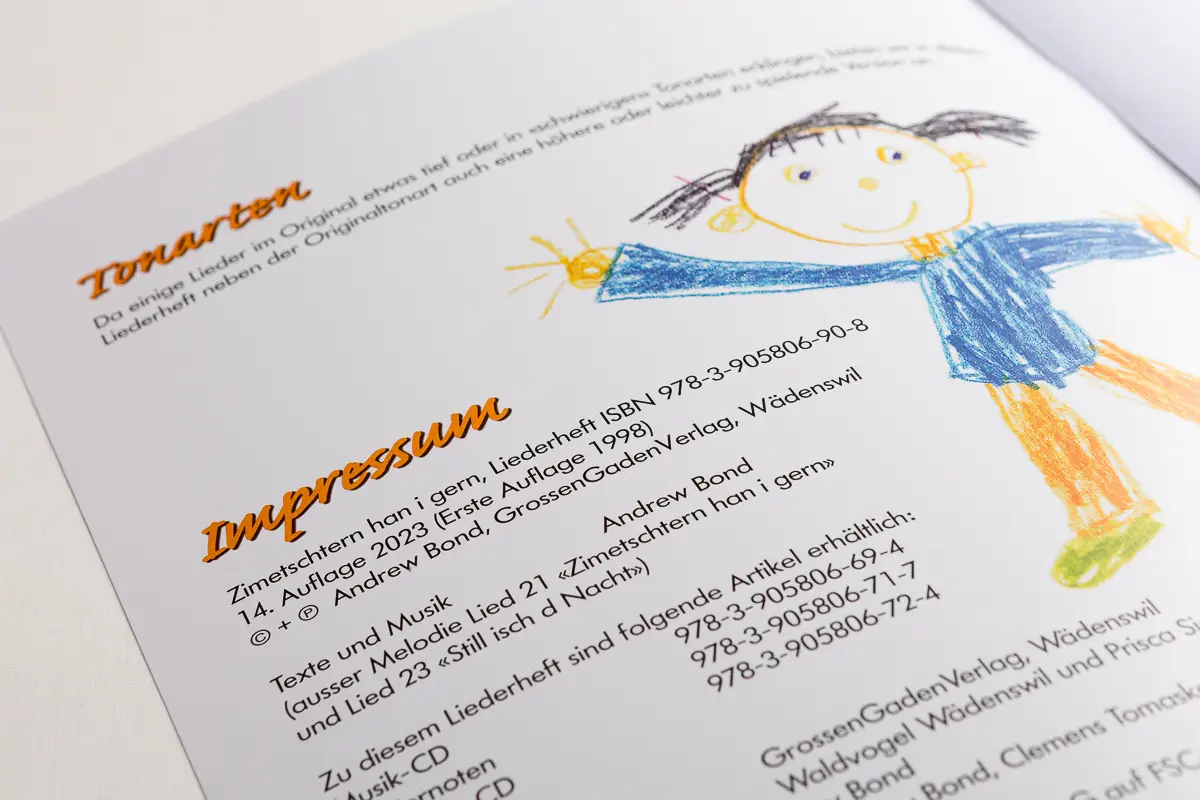 Tonarten
Da einige Lieder im Original etwas tief oder in «schwierigen» Tonarten erklingen, bieten wir in diesem
Liederheft neben der Originaltonart auch eine höhere oder leichter zu spielende Version an.
Impressum
Zimetschtern han i gern, Liederheft ISBN 978-3-905806-90-8
14. Auflage 2023 (Erste Auflage 1998)
© + ℗ Andrew Bond, GrossenGadenVerlag, Wädenswil
Texte und Musik Andrew Bond
(ausser Melodie Lied 21 «Zimetschtern han i gern»
und Lied 23 «Still isch d Nacht»)
Zu diesem Liederheft sind folgende Artikel erhältlich:
Musik-CD 978-3-905806-69-4
978-3-905806-71-7
CD 978-3-905806-72-4
GrossenGadenVerlag, Wädenswil
Waldvogel Wädenswil und Prisca
Bond
Bond, Clemens
auf FSC